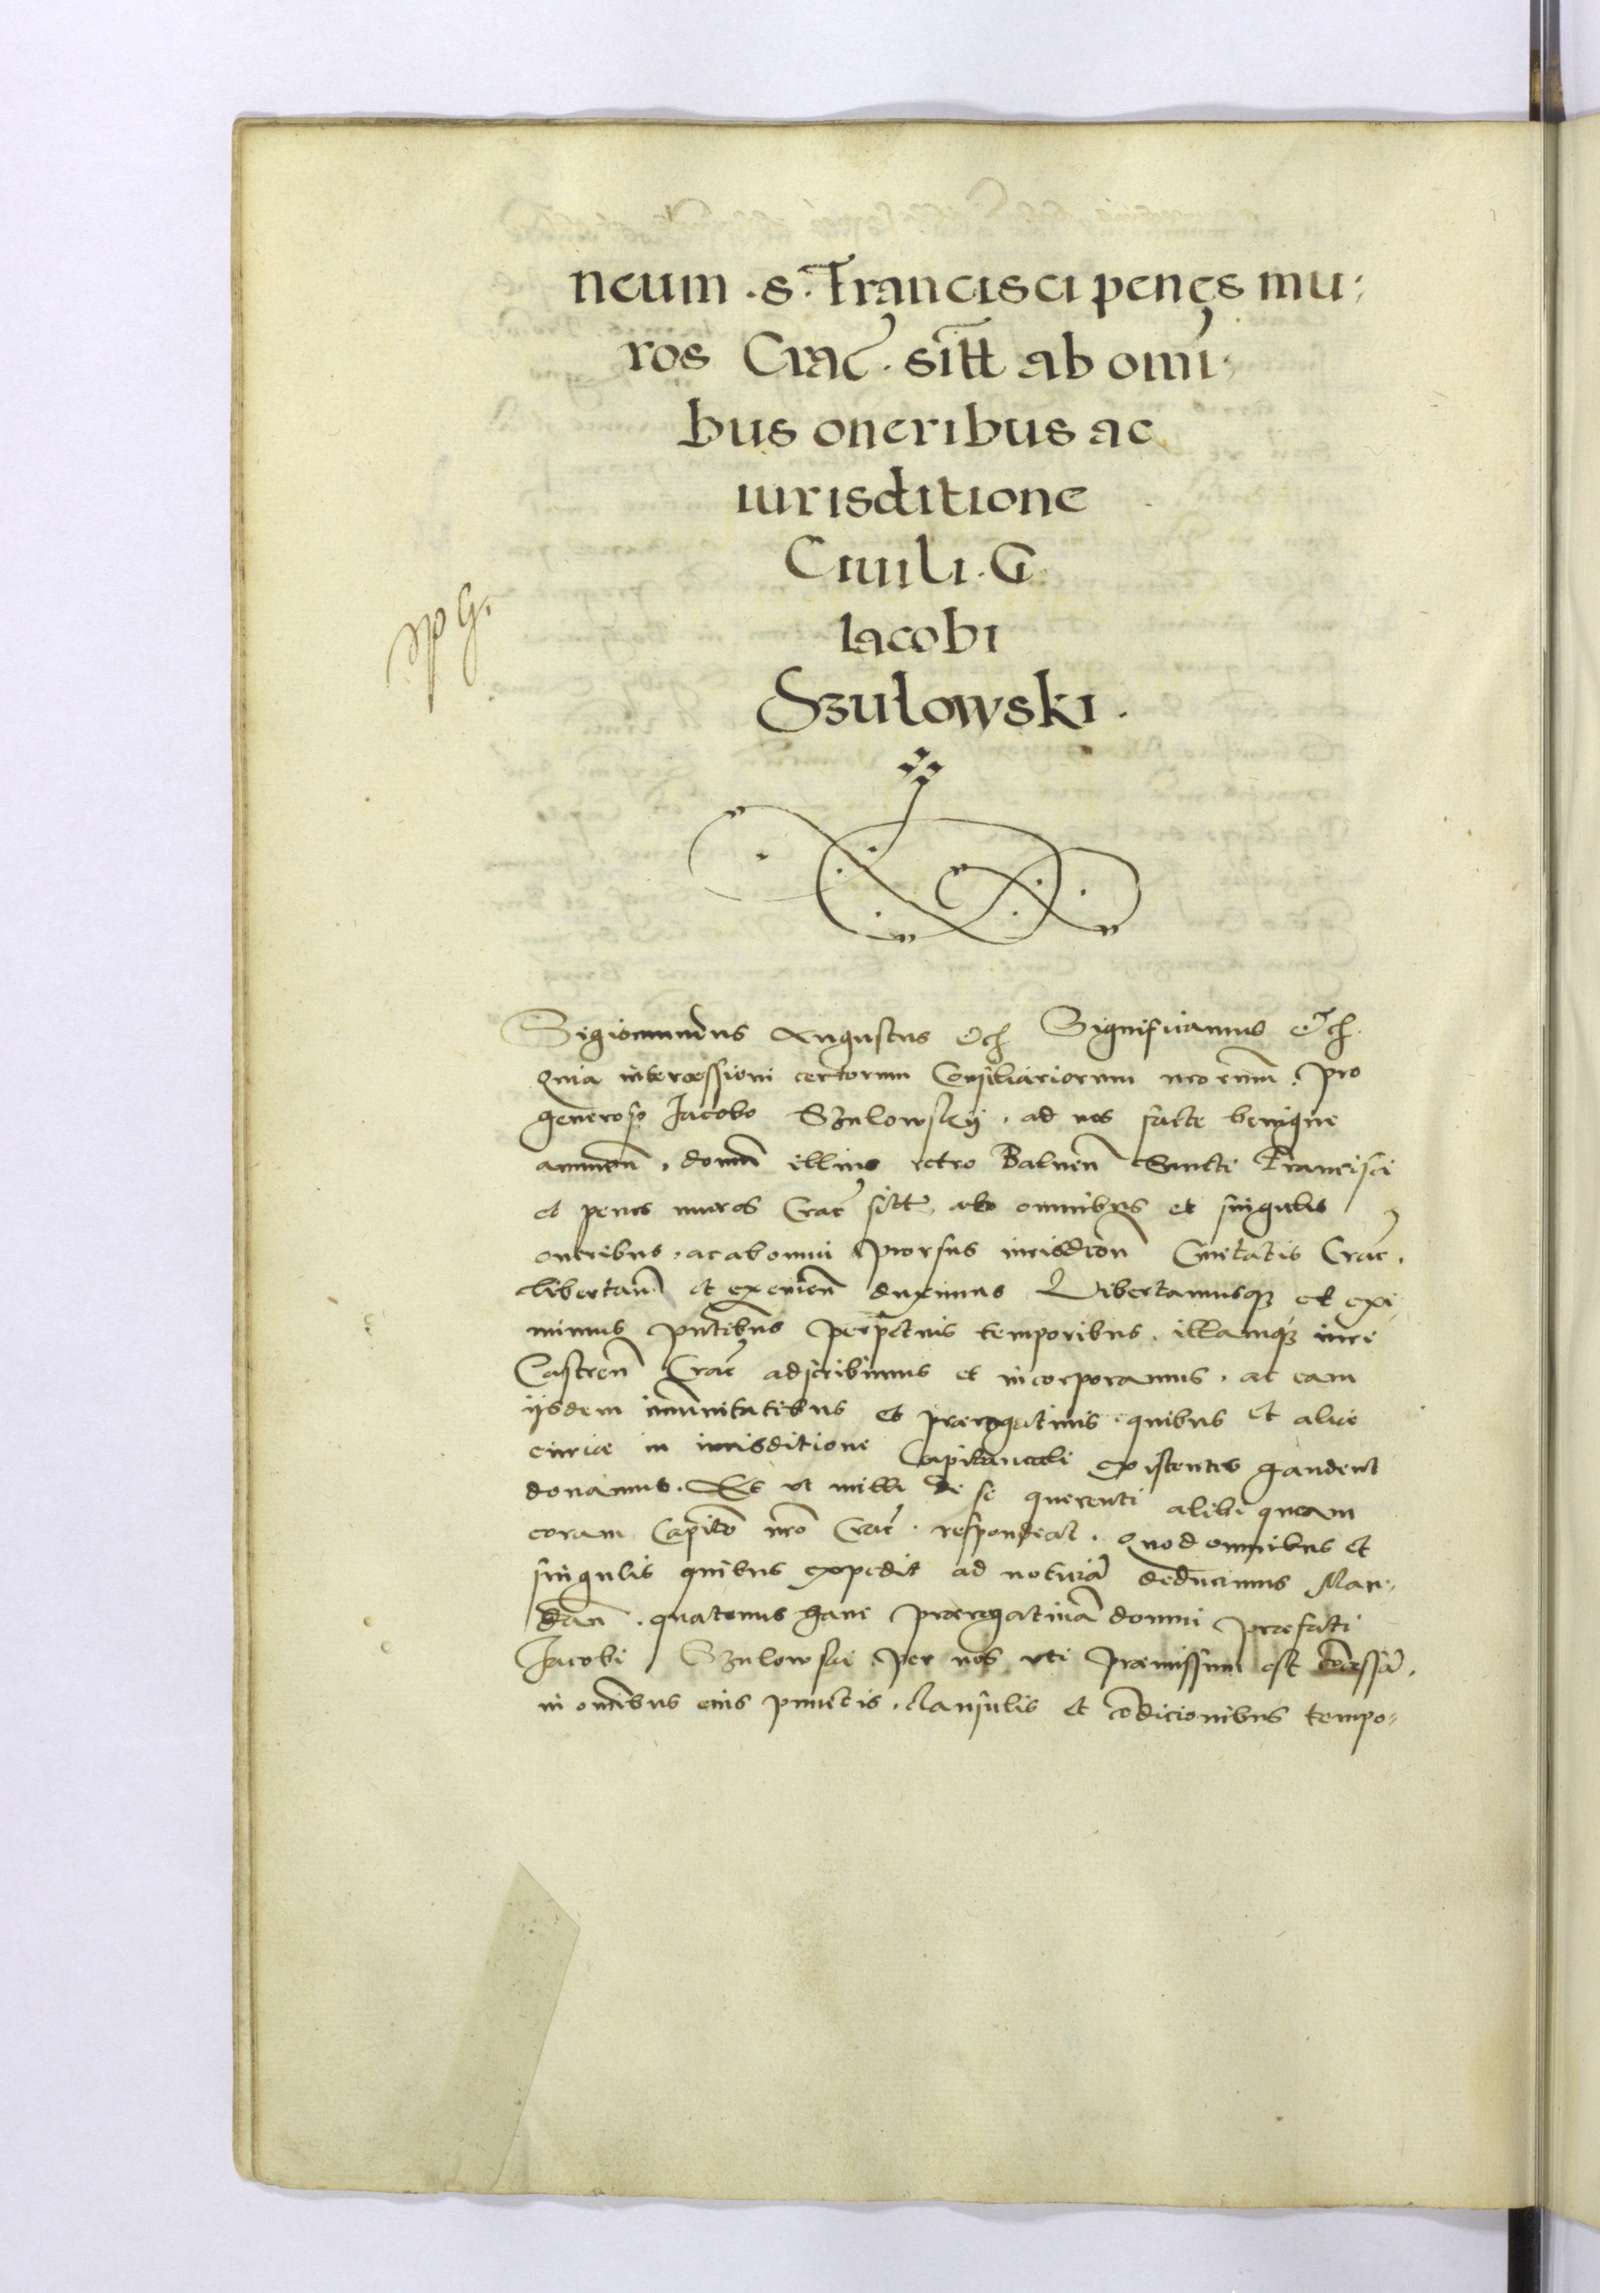 neum . s. Francisci penęs mu:
ros Crac̃ . sitt̃ ab om̃i:
bus oneribus ac
iurisditione
Ciuili . G
Iacobi
Szulowski .
Sigismundus Augustus etc̃ Significamus etc̃.
Quia intercessioni certorum Consiliariorum nr̃orum . pro
generoso Jacobo Szulowskij . ad nos facte benigne
annuen̄ . domū illius retro Balneū Sancti Francisci
et penes muros Crac̃ sitt̃ ab omnibus et singulis
oneribus . ac ab omni prorsus iurisdicōn Ciuitatis Crac̃ .
libertan̄ et eximen̄ duximus Libertamusq3 et exi
mimus pn̄tibus perpetuis temporibus . illamq3 iuri
Castren̄ Crac̃ adscribimus et incorporamus . ac eam
iisdem im̄unitatibus et prærogatiuis quibus et aliæ
curiæ in iurisditione Capitaneali existentes gaudent
donamus . Et ut nulli de se querenti alibi quam
coram Capitō nr̃o Crac̃ . respondeat . Quod omnibus et
singulis quibus expedit ad notitiā deducimus Man-
dan̄ . quatenus hanc prærogatiuā domui præfati
Jacobi Szulowski per nos uti præmissum est concessā .
in om̄ibus eius punctis . clausulis et cōdicionibus tempo-